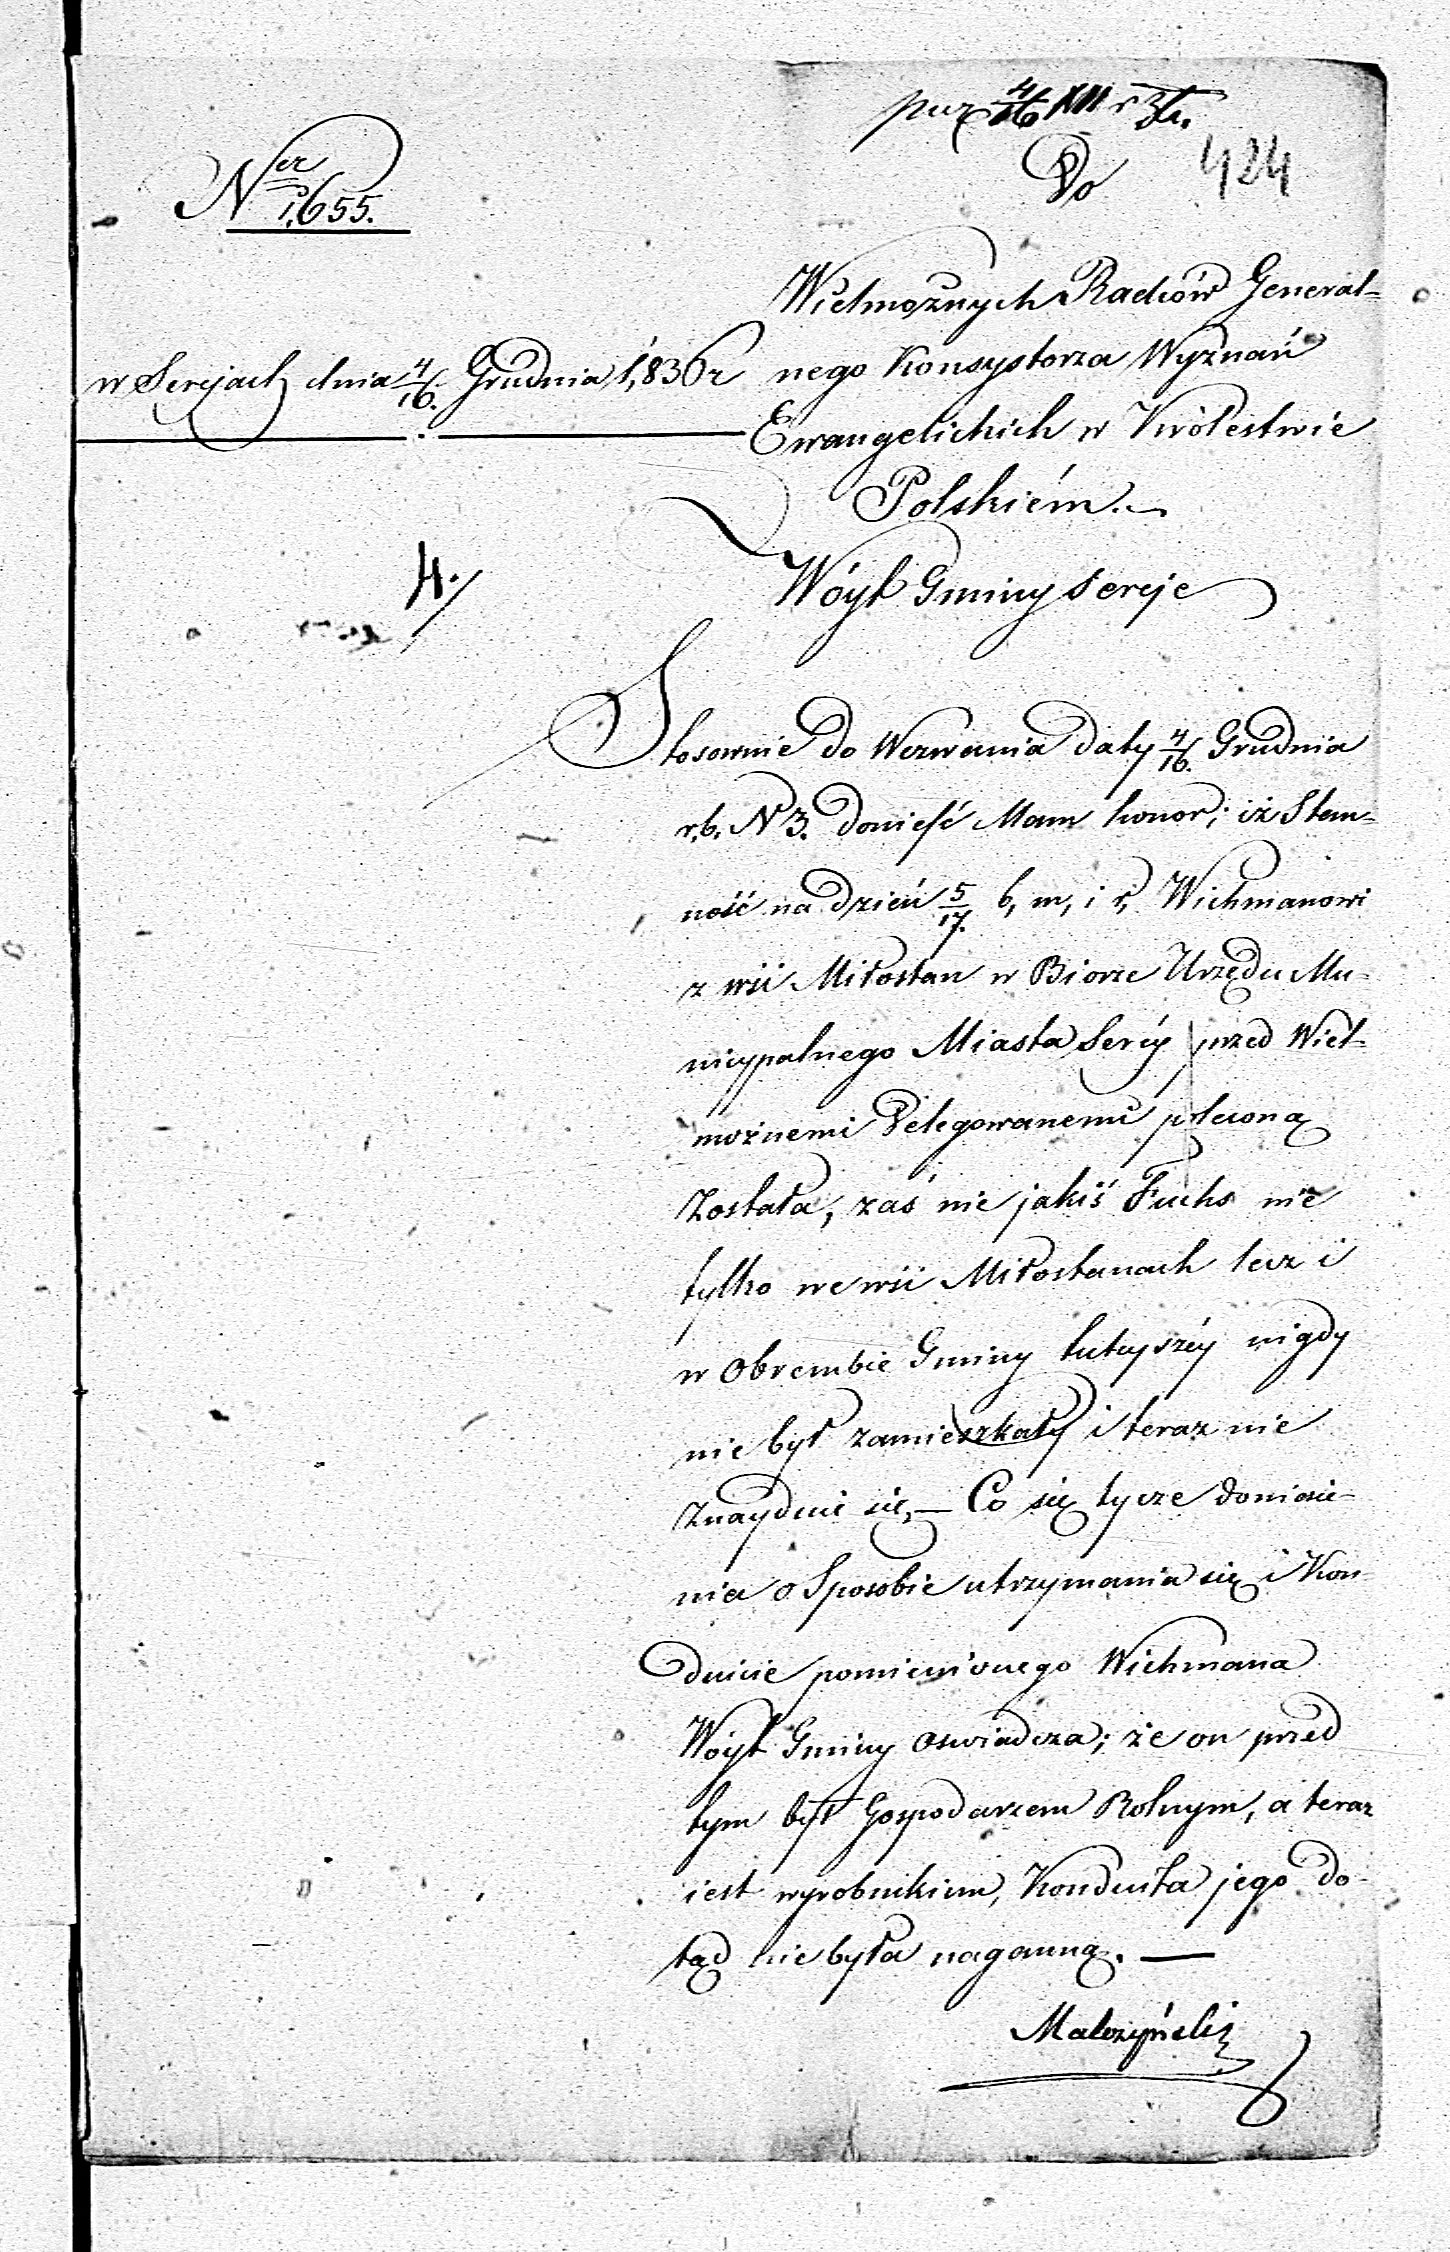 4/16 XII
Do
424
Ner
1,655.
Wielmożnych Radców General-
nego Konsystorza Wyznań
w Serejach dnia 4/16. Grudnia 1,836 r
Ewangelickich w Królestwie
Polskiém.
4./
Wóyt Gminy Sereje
Stosownie do Wezwania daty 4/16. Grudnia
r.b. N 3. donieść Mam honor; iż Stan-
ność na dzień 5/17. b, m, i r, Wichmanowi
z wsi Mitostan w Biorze Urzędu Mu-
nicypalnego Miasta Seréy przed Wiel-
możnemi Delegowanemi poleconą
Została, zaś nie jakiś Fuchs nie
tylko we wsi Mitostanach lecz i
w Obrembie Gminy tuteyszéy nigdy
nie był zamieszkały i teraz nie
Znayduie się, — Co się tycze doniesie-
nia o Sposobie utrzymania się i Kon-
duicie pomienionego Wichmana
Wóyt Gminy oswiadcza; że on przed
tym był Gospodarzem Rolnym, a teraz
iest wyrobnikiem, Konduita jego do-
tąd nie była naganną. —